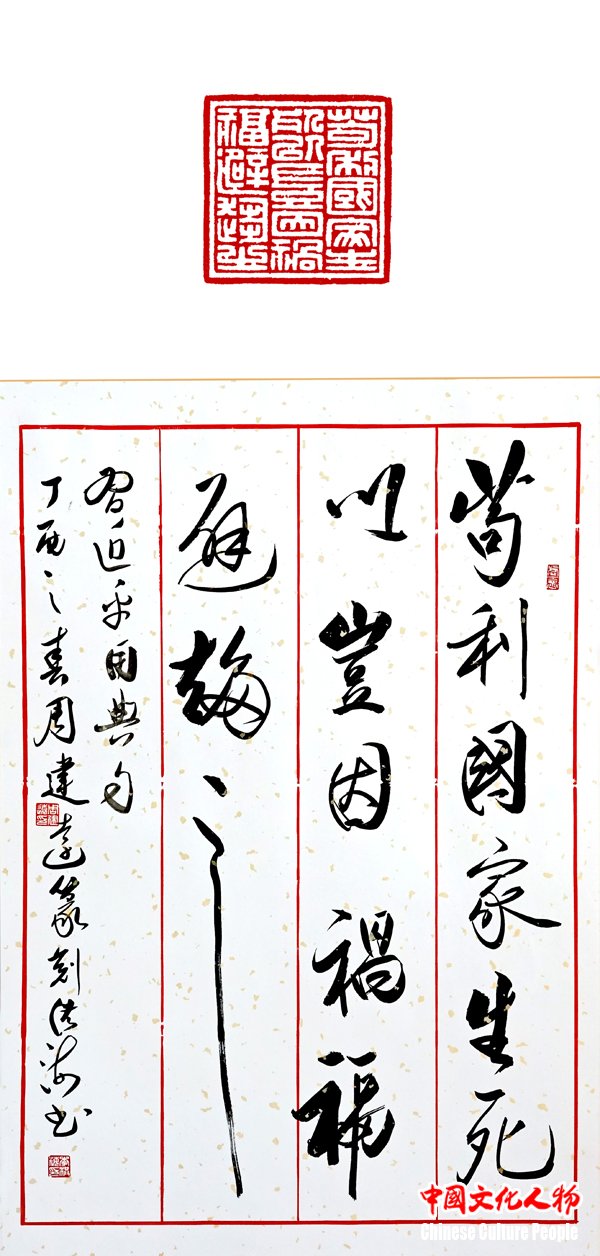 苟利國家生
死以豈因禍
福避趨之
苟利國家生死
以豈因禍福
避趨之
習近平用典句
丁酉之春周建遠篆刻洪海书
中國文化人物
Chinese Culture People